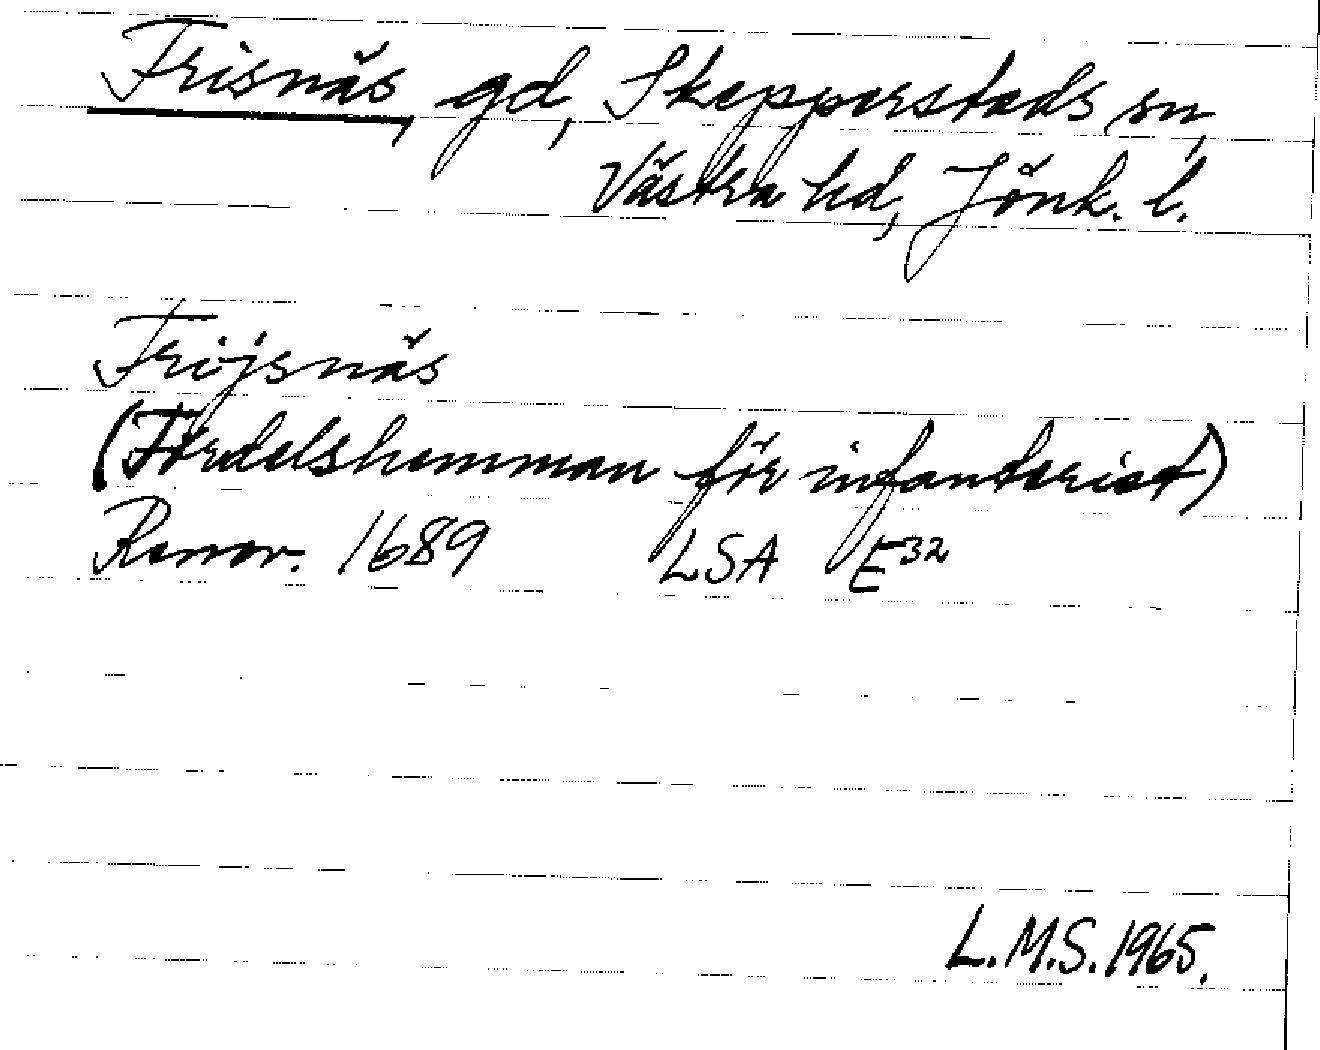 Frisnäs, gd, Skepperstads sn,
Västra hd, Jönk. l.
Fröjsnäs
(Fördelshemman för infanterist)
Renov. 1689 LSA E32
L.M.S. 1965.